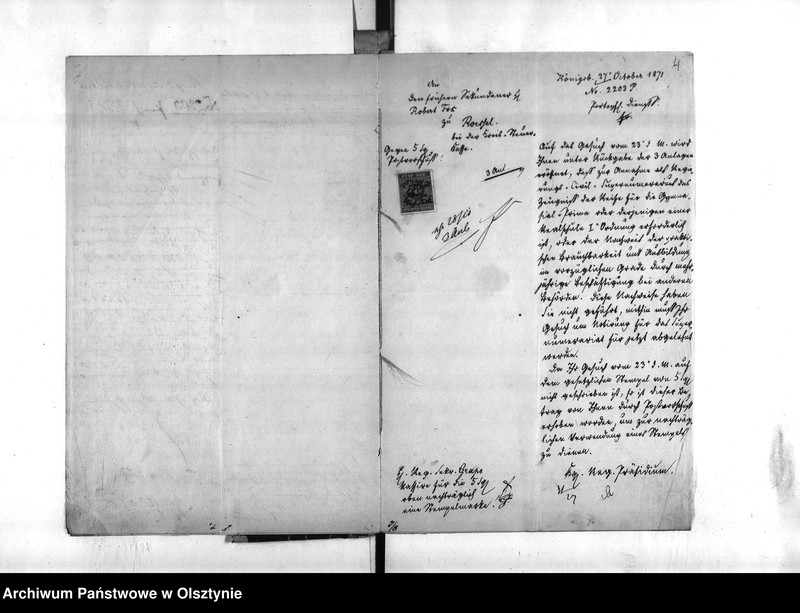 4
Königsb. 27 October 1871
No. 2203 P
An
den frühern Sekundaner H
Robert Fox
zu Roessel.
bei der Kreis-Steuer-
Kasse.
Gegen 5 sg
Postvorschuß!
3 Anl
3 Anl
Auf das Gesuch vom 23 d. M. wird
Ihnen unter Rückgabe der 3 Anlagen
eröffnet, daß zur Annahme als Regie
rungs-Civil-Supernumerar das
Zeugniß der Reife für die Gymna-
sial-Prima oder derjenigen einer
Realschule I Ordnung erforderlich
ist, oder der Nachweis der prakti-
schen Brauchbarkeit und Ausbildung
in vorzüglichem Grade durch mehr-
jährige Beschäftigung bei anderen
Behörden. Diese Nachweise haben
Sie nicht geführt, mithin muß Ihr
Gesuch um Notirung für das Super
numerariat für jetzt abgelehnt
werden.
Da Ihr Gesuch vom 23 d. M. auf
dem gesetzlichen Stempel von 5 sg
nicht geschrieben ist, so ist dieser Be-
trag von Ihnen durch Postvorschuß
erhoben worden, um zur nachträg-
lichen Verwendung eines Stempels
zu dienen.
Kgl. Reg. Präsidium.
H. Reg. Sekr.
kassire für die 5 sg
oben nachträglich
eine Stempelmarke.
Archiwum Państwowe w Olsztynie